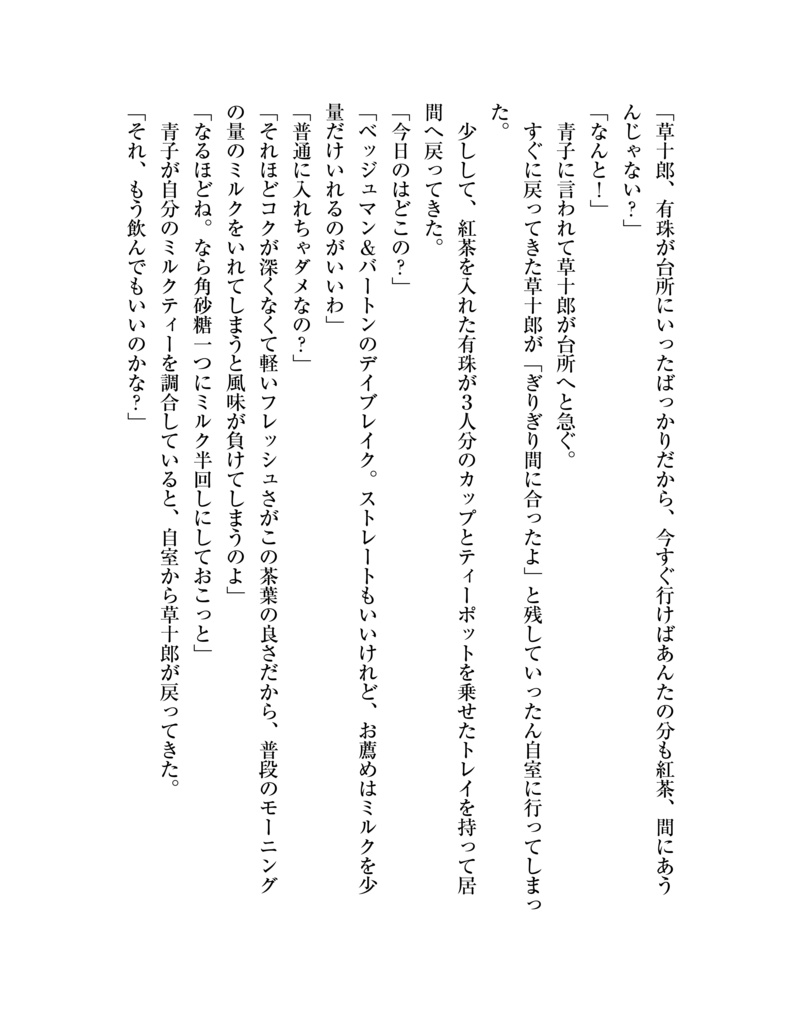 「草十郎、有珠が台所にいったばっかりだから、今すぐ行けばあんたの分も紅茶、間にあう
んじゃない？」
「なんと！」
　青子に言われて草十郎が台所へと急ぐ。
　すぐに戻ってきた草十郎が「ぎりぎり間に合ったよ」と残していったん自室に行ってしまっ
た。
　少しして、紅茶を入れた有珠が３人分のカップとティーポットを乗せたトレイを持って居
間へ戻ってきた。
「今日のはどこの？」
「ベッジュマン＆バートンのデイブレイク。ストレートもいいけれど、お薦めはミルクを少
量だけいれるのがいいわ」
「普通に入れちゃダメなの？」
「それほどコクが深くなくて軽いフレッシュさがこの茶葉の良さだから、普段のモーニング
の量のミルクをいれてしまうと風味が負けてしまうのよ」
「なるほどね。なら角砂糖一つにミルク半回しにしておこっと」
　青子が自分のミルクティーを調合していると、自室から草十郎が戻ってきた。
「それ、もう飲んでもいいのかな？」